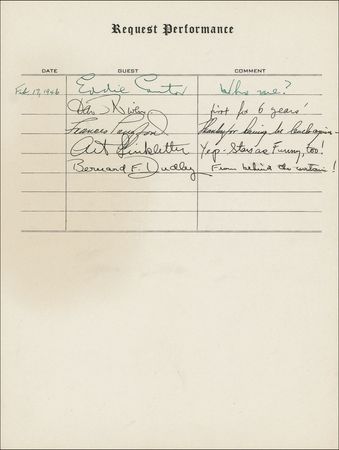 Request Performance
DATE GUEST COMMENT
Feb. 17, 1946 Eddie Cantor Who me?
first for 6 years!
Frances Langford Thanks for having me back again -
Art Linkletter Yep - Stas as Funny, too!
Bernard F. Dudley From behind the curtain!